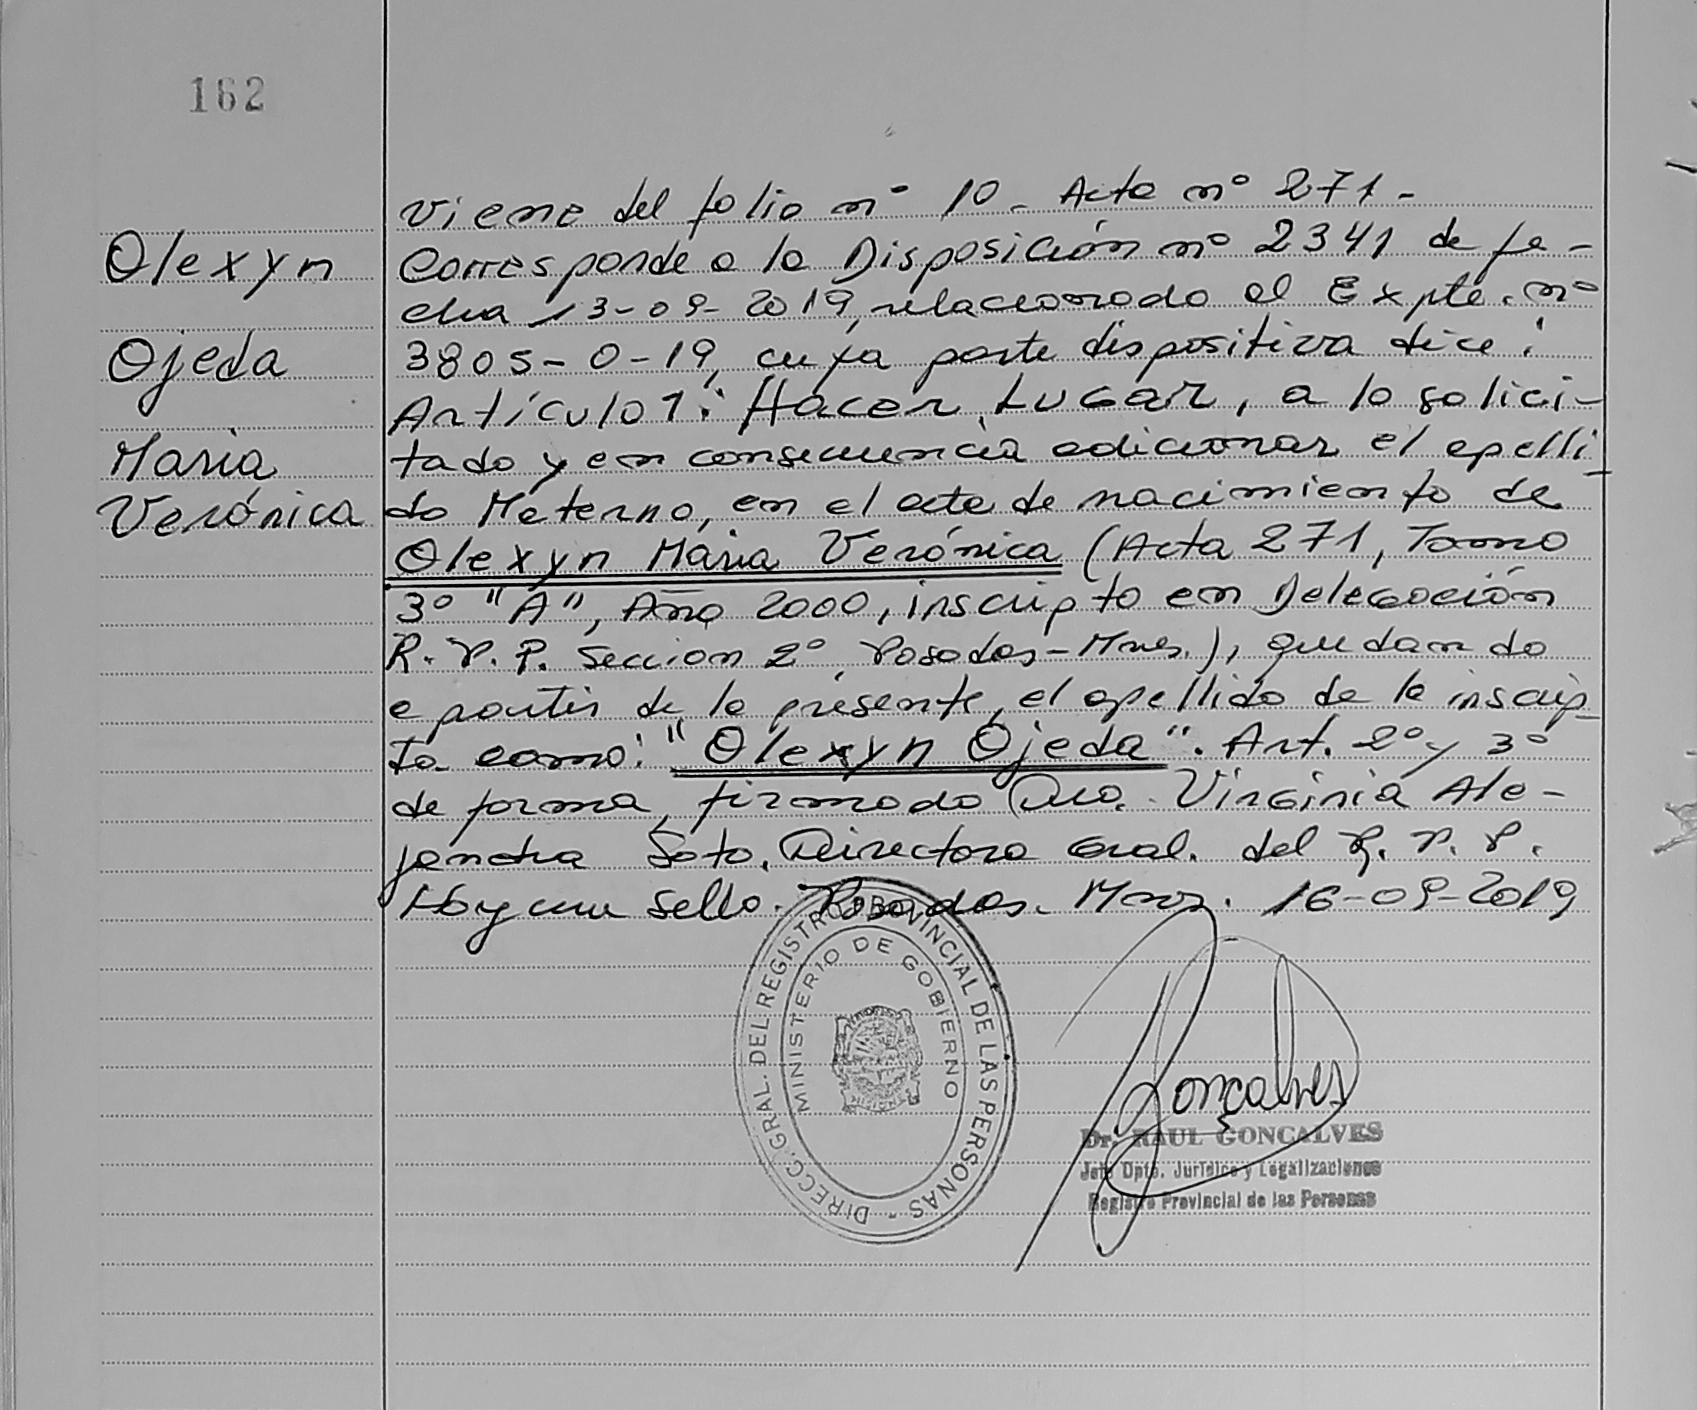 162
Olexyn
Ojeda
Maria
Verónica
viene del folio nº 10 - Acta nº 271 -
Corresponde a la Disposición nº 2341 de fe-
cha 13-09-2019, relacionado al Expte. nº
3805-O-19, cuya parte dispositiva dice:
Artículo 1: Hacer Lugar, a lo solici-
tado y en consecuencia adicionar el apelli-
do Materno, en el acta de nacimiento de
Olexyn Maria Verónica (Acta 271, Tomo
3º "A", Año 2000, inscripto en Delegación
R.P.P. Seccion 2º, Posadas-Mnes.), quedando
a partir de la presente, el apellido de la inscrip-
ta como: "Olexyn Ojeda". Art. 2º y 3º
de forma, firmado Dra. Virginia Ale-
jandra Soto, Directora Gral. del R.P.P.
Hay un sello. Posadas. Mnes. 16-09-2019
DIRECC. GRAL. DEL REGISTRO PROVINCIAL DE LAS PERSONAS -
MINISTERIO DE GOBIERNO
MISIONES
Gonçalves
Dr. RAUL GONCALVES
Jefe Dpto. Jurídico y Legalizaciones
Registro Provincial de las Personas